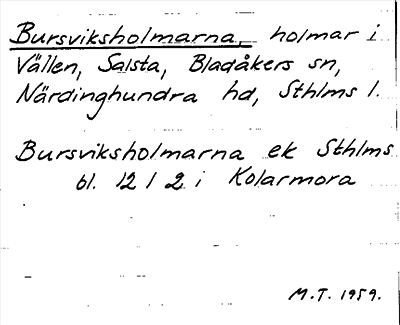 Bursviksholmarna, holmar i
Vällen, Salsta, Bladåkers sn,
Närdinghundra hd, Sthlms l.
Bursviksholmarna ek Sthlms
bl. 12 l 2 i Kolarmora
M.T. 1959.